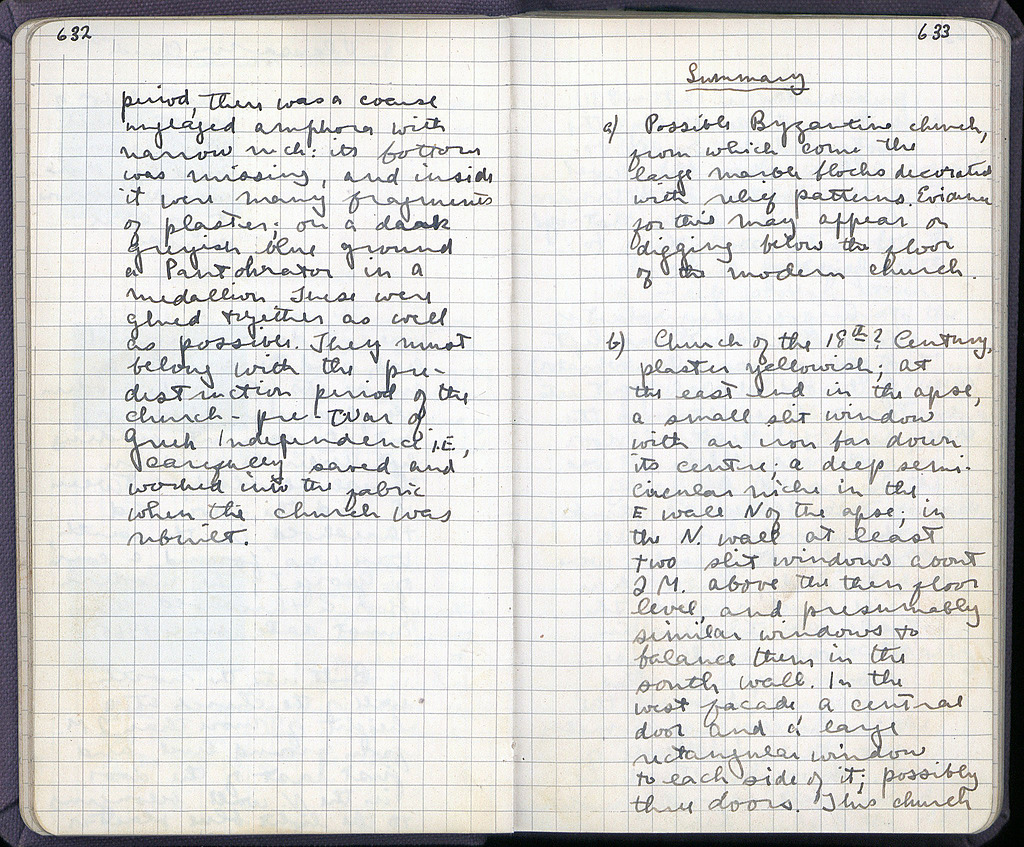 632
period, there was a coarse
unglazed amphora with
narrow neck: its bottom
was missing, and inside
it were many fragments
of plaster; on a dark
greyish blue ground
a Pantokrator in a
medallion. These were
glued together as well
as possible. They must
belong with the pre-
destruction period of the
church - pre-War of
Greek Independence i.E.,
carefully saved and
worked into the fabric
when the church was
rebuilt.
633
Summary
a) Possible Byzantine church,
from which come the
large marble blocks decorated
with relief patterns. Evidence
for this may appear on
digging below the floor
of the modern church.
b) Church of the 18th? Century,
plaster yellowish; at
the east end in the apse,
a small slit window
with an iron bar down
its centre; a deep semi-
circular niche in the
E wall N of the apse; in
the N. wall at least
two slit windows about
2 M. above the then floor
level, and presumably
similar windows to
balance them in the
south wall. In the
west façade a central
door and a large
rectangular window
to each side of it; possibly
three doors. This church